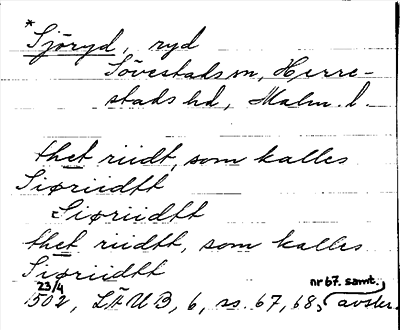 *Sjöryd, ryd
Sövestads sn, Herre-
stads hd, Malm. l.
thet riidt, som kalles
Siøriidtt
Siøriidtt
thet riidt, som kalles
Siøriidtt
23/4 nr 67. samt.
1502, LÄUB, 6, ss. 67, 68, avskr.